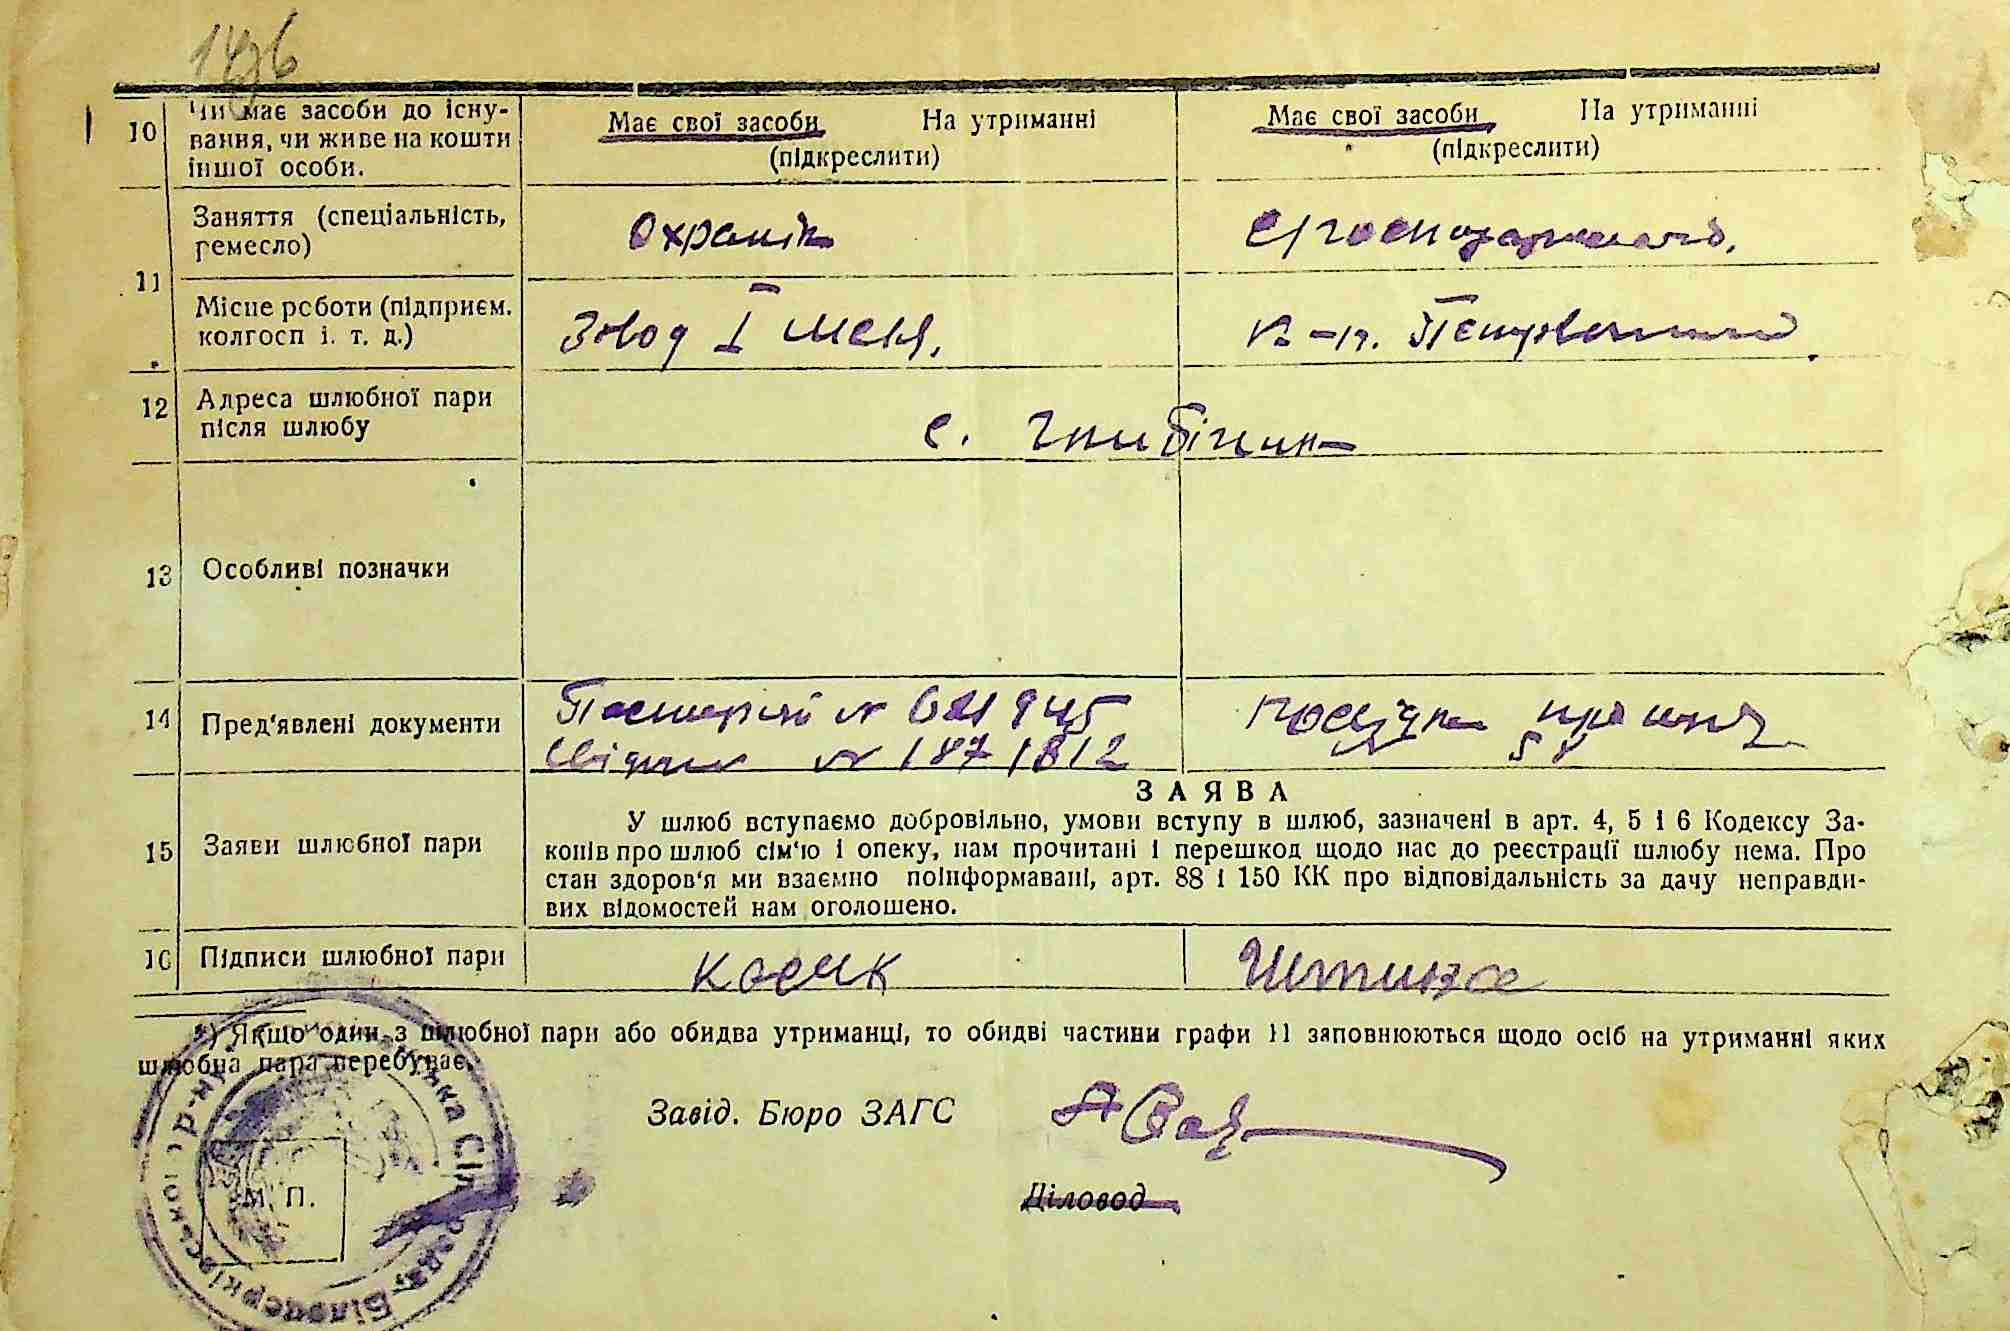 10 Чи має засоби до існу-
вання, чи живе на кошти
іншої особи.
Має свої засоби На утриманні
(підкреслити)
Має свої засоби На утриманні
(підкреслити)
11 Заняття (спеціальність,
ремесло)
Охранік
Місце роботи (підприєм.
колгосп і. т. д.)
Завод І
12 Адреса шлюбної пари
після шлюбу
с.
13 Особливі позначки
14 Пред'явлені документи
Пасторий №
№ 187 1812
15 Заяви шлюбної пари
ЗАЯВА
У шлюб вступаємо добровільно, умови вступу в шлюб, зазначені в арт. 4, 5 і 6 Кодексу За-
конів про шлюб сім'ю і опеку, нам прочитані і перешкод щодо нас до реєстрації шлюбу нема. Про
стан здоров'я ми взаємно поінформавані, арт. 88 і 150 КК про відповідальність за дачу неправди-
вих відомостей нам оголошено.
16 Підписи шлюбної пари
Косик
*) Якщо один з шлюбної пари або обидва утриманці, то обидві частини графи 11 заповнюються щодо осіб на утриманні яких
шлюбна пара перебуває.
Завід. Бюро ЗАГС
Діловод
М. П.